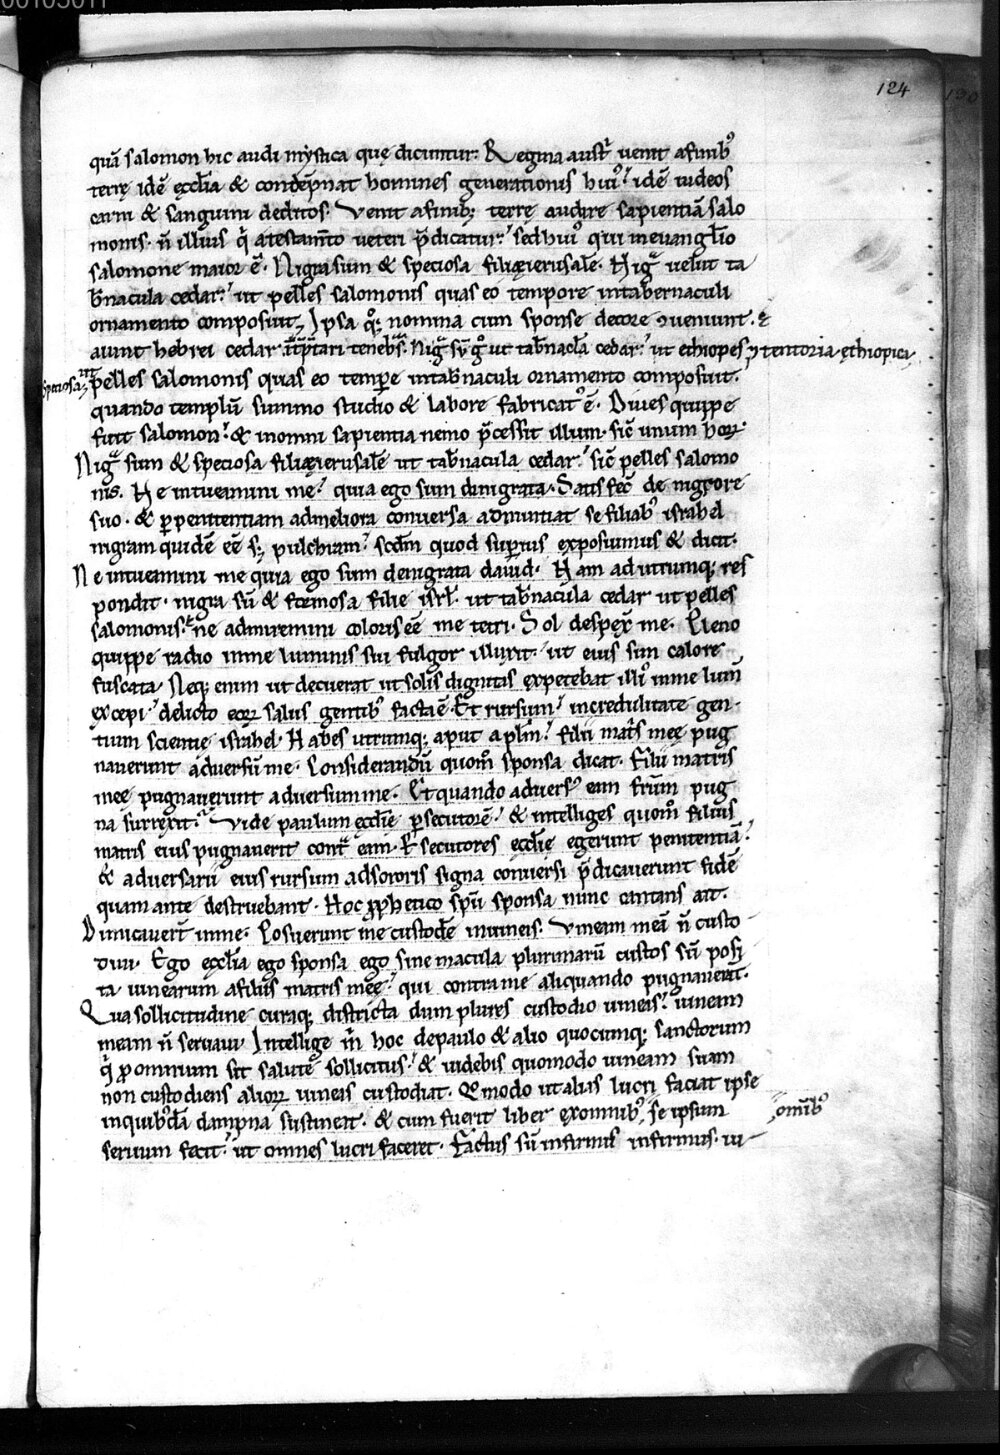 124
quā salomon hic audi mystica quę dicuntur: Regina austⁱ uenit afinibꝰ
terrę idē ęccl̄ia & condēpnat homines generationis huiꝰ idē iudeos
carni & sanguini deditos. Venit afinibꝫ terrę audire sapientiā salo
monis. n̄ illius q̄ atestam̄to ueteri p̄dicatur. sed huiꝰ qui ineuangl̄io
salomone maior ē. Nigra sum & speciosa filię ierusalē. Nigᵃ uelut ta
b̄nacula cedar. ut pelles salomonis quas eo tempore intabernaculi
ornamento composuit. Ipsa qͦꝫ nomina cum sponse decore ꝯueniunt. &
aiunt hebrei cedar īt̄p̄tari tenebᵃs. Nigᵃ sū gͦ ut tab̄nacl̄a cedar. ut ethiopes ꝯ tentoria ethiopica
speciosa ut pelles salomonis quas eo tempꝑe intab̄naculi ornamento composuit.
quando templū summo studio & labore fabricatꝰ ē. Diues quippe
fuit salomon. & inomni sapientia nemo p̄cessit illum. sic̄ unum hoꝝ.
Nigᵃ sum & speciosa filię ierusalē ut tab̄nacula cedar. sic̄ pelles salomo
nis. Ne intueamini me. quia ego sum denigrata. Satis fec̄ de nigrore
suo. & ꝑ penitentiam admeliora conuersa adnuntiat se filiabꝰ israhel
nigram quidē eē sꝫ pulchram. scdm̄ quod suꝑius exposuimus & dicit.
Ne intueamini me quia ego sum denigrata dauid. Nam ad utrumqꝫ res
pondit. nigra sū & formosa filie isrl̄. ut tab̄nacula cedar ut pelles
salomonis. ne admiremini coloris eē me tetri. Sol despex̄ me. Pleno
quippe radio inme luminis sui fulgor illuxit. ut eius sim calore
fuscata. Neqꝫ enim ut decuerat ut solis dignitas expetebat illiꝰ inme lum̄
excepi. delicto eoꝝ salus gentibꝰ facta ē. Et rursum. incredulitate gen
tium scientię israhel. Habes utrumqꝫ aput apl̄m. Filii mat̄s męę pug
nauerunt aduersū me. Considerandū quom̊ sponsa dicat. Filii matris
męę pugnauerunt aduersum me. Et quando aduersꝰ eam fr̄um pug
na surrexit. Vide paulum ęccl̄ię ꝑsecutorē. & intelliges quom̊ filius
matris eius pugnauerit contᵃ eam. Ꝑsecutores ęccl̄ię egerunt penitentiā.
& aduersarii eius rursum adsororis signa conuersi p̄dicauerunt fidē
quam ante destruebant. Hoc ꝓphetico spū sponsa nunc cantans ait.
Dimicauer̄t inme. Posuerunt me custodē inuineis. Vineam meā n̄ custo
diui. Ego ęccl̄ia ego sponsa ego sine macula plurimarū custos sū posi
ta uinearum afiliis matris męę. qui contra me aliquando pugnauerāt.
Qua sollicitudine curaqꝫ districta dum plures custodio uineis. uineam
meam n̄ seruaui. Intellige m̊ hoc depaulo & alio quocumqꝫ sanctorum
q̄ ꝓ omnium sit salute sollicitus. & uidebis quomodo uineam suam
non custodiens alioꝝ uineis custodiat. Qͦmodo ut alias lucri faciat ipse
inquibꝰdā dampna sustineat. & cum fuerit liber exomnibꝰ, se ipsum omibꝰ
seruum fecit. ut omnes lucri faceret. Factus sū infirmis infirmus. ui